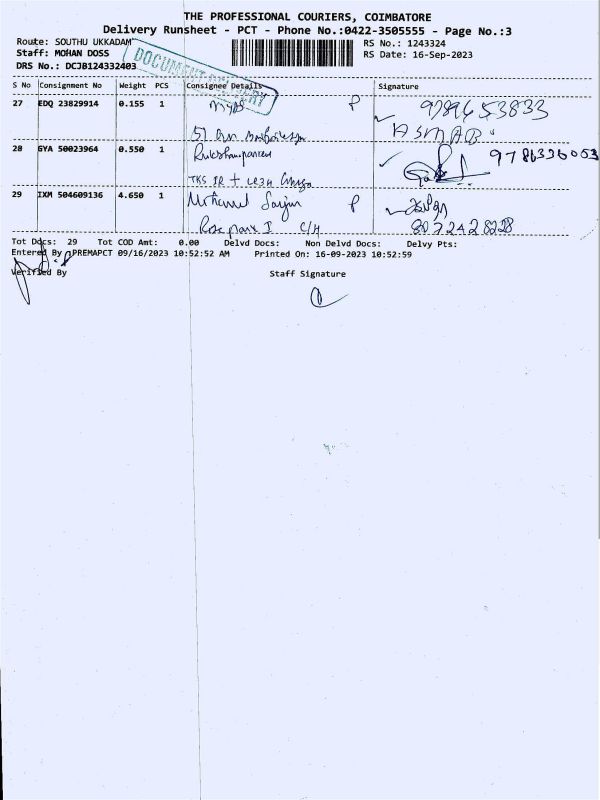 THE PROFESSIONAL COURIERS, COIMBATORE
Delivery Runsheet - PCT - Phone No.:0422-3505555 - Page No.:3
Route: SOUTHU UKKADAM
RS No.: 1243324
Staff: MOHAN DOSS
RS Date: 16-Sep-2023
DRS No.: DCJB124332403
DOCUMENT DELIVERY
S No Consignment No Weight PCS Consignee Details Signature
27 EDQ 23829914 0.155 1 P 9789653833
ASMAB
28 GYA 50023964 0.550 1 9786336053
29 IXM 504609136 4.650 1 Mohamed P
I C/H 8072428228
Tot Docs: 29 Tot COD Amt: 0.00 Delvd Docs: Non Delvd Docs: Delvy Pts:
Entered By PREMAPCT 09/16/2023 10:52:52 AM Printed On: 16-09-2023 10:52:59
Verified By Staff Signature